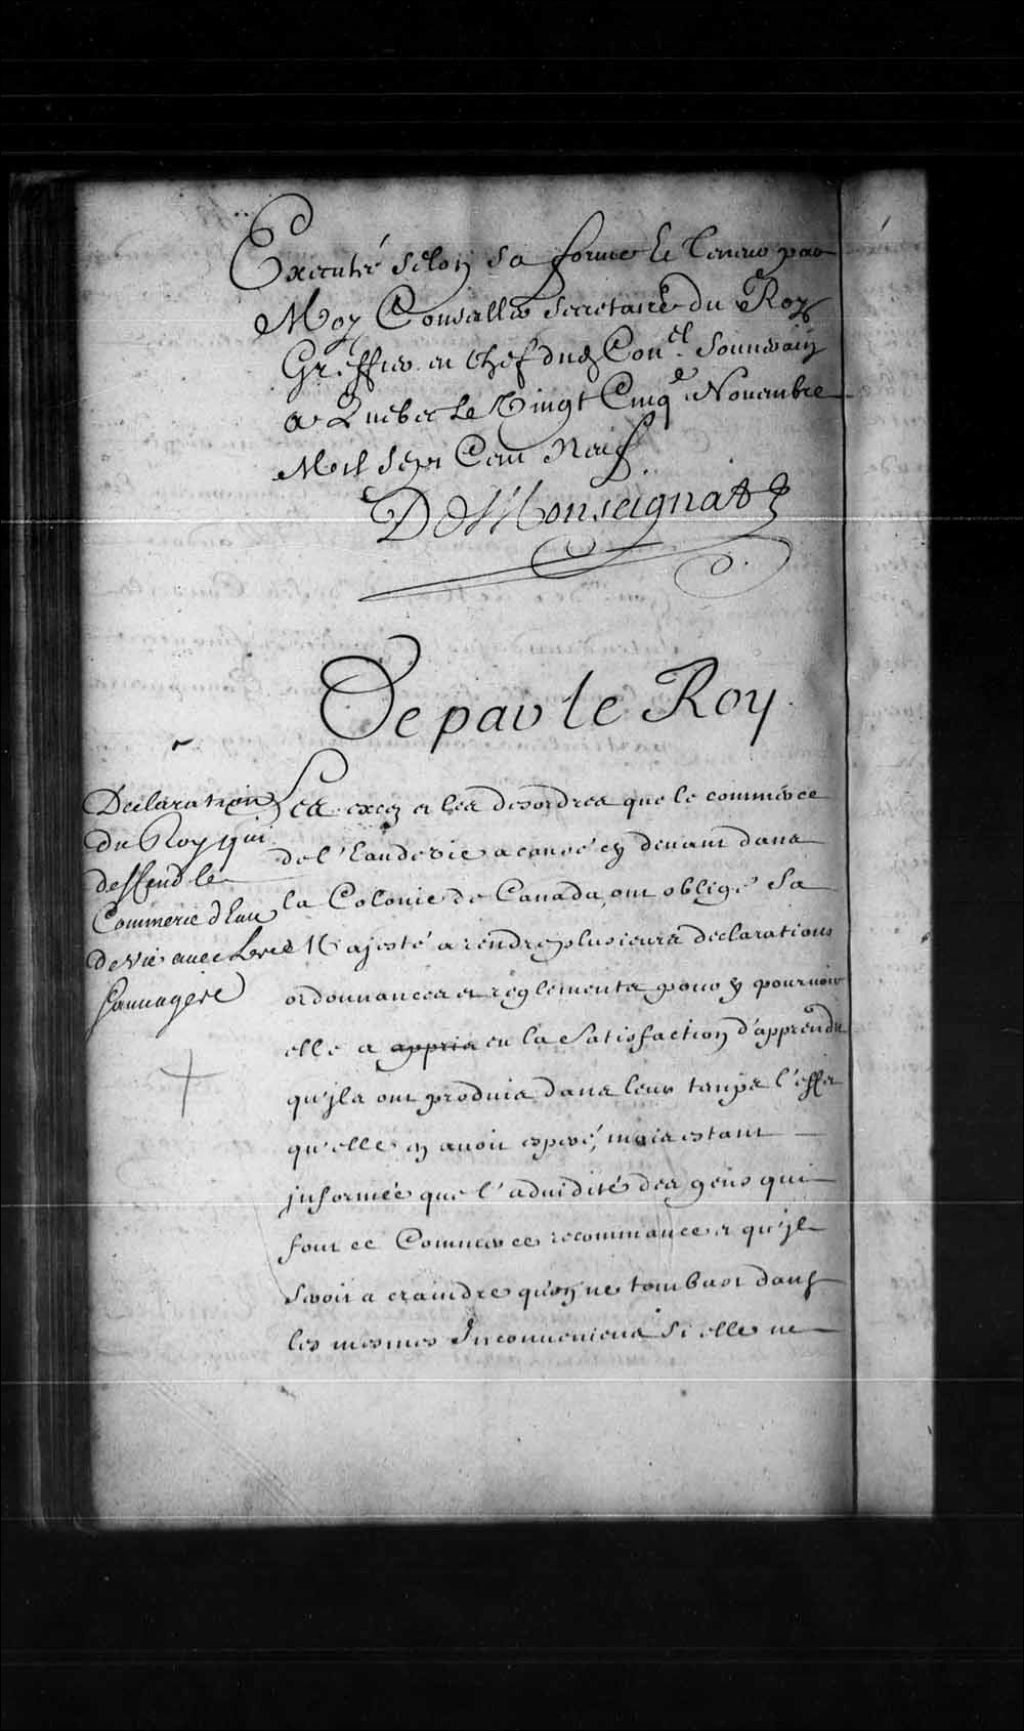 Executé selon sa forme & teneur par
Moy Conseiller secretaire du Roy
Greffier en chef dud Con.el Souverain
a Quebec Le Vingt Cinq.e Novembre
Mil Sept Cent Neuf.
De Monseignat
De par le Roy
Declaration
du Roy qui
deffend le
Commerce d'Eau
de vie avec Les
Sauvages
Les excez et les desordres que le commerce
de l'Eau de vie a causé cy devant dans
la Colonie de Canada, ont obligé Sa
Majesté a rendre plusieurs declarations
ordonnances et reglements pour y pourvoir
elle a appris eu la satisfaction d'apprendre
qu'jls ont produis dans leur temps l'effet
qu'elle en avoit esperé, mais estant
jnformée que l'aduidité des gens qui
font ce Commerce recommance et qu'jl
seroit a craindre qu'on ne tombast dans
les mesmes Inconveniens si elle ne